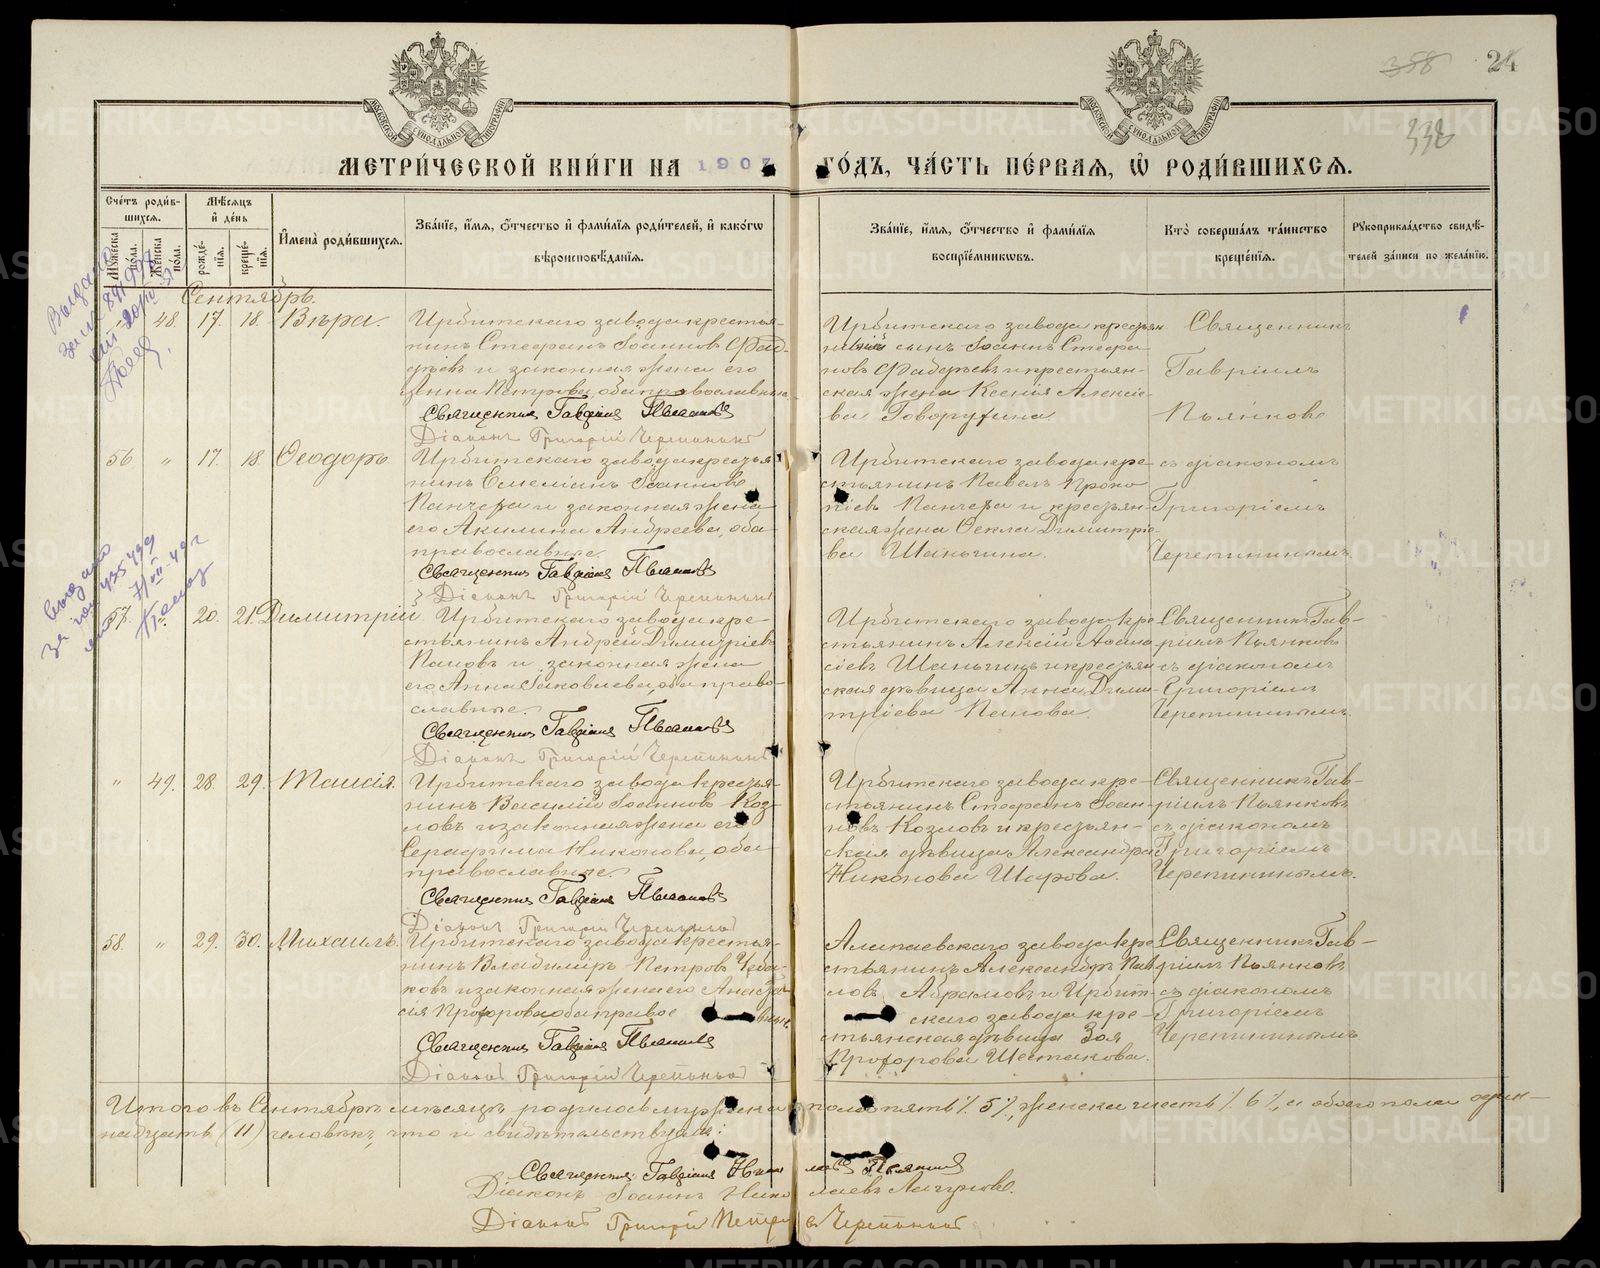 358 24
338
МОСКОВСКОЙ СѴНОДАЛЬНОЙ ТИПОГРАФІИ
МОСКОВСКОЙ СѴНОДАЛЬНОЙ ТИПОГРАФІИ
МЕТРИ́ЧЕСКОЙ КНИ́ГИ НА 1907 ГО́ДЪ, ЧА́СТЬ ПЕ́РВАѦ, Ѡ҆ РОДИ́ВШИХСѦ.
Сче́тъ роди́в-
шихсѧ.
Мꙋ́жеска по́ла.
Же́нска по́ла.
Мѣ́сѧцъ и҆ де́нь
рожде́-
нїѧ.
креще́-
нїѧ.
И҆мена̀ роди́вшихсѧ.
Зва́нїе, и҆́мѧ, ѻ҆́тчество и҆ фами́лїѧ роди́телей, и҆ како́гѡ
вѣроисповѣ́данїѧ.
Зва́нїе, и҆́мѧ, ѻ҆́тчество и҆ фами́лїѧ
воспрїе́мникѡвъ.
Кто̀ соверша́лъ та́инство
креще́нїѧ.
Рꙋкоприкла́дство свидѣ́-
телей за́писи по жела́нїю.
Сентябрь.
" 48. 17. 18. Вѣра.
Ирбитскаго завода крестья-
нинъ Стефанъ Іоанновъ Фад-
дѣевъ и законная жена его
Анна Петрова, оба православные
Священникъ Гавріилъ Пьянковъ
Діаконъ Григорій Черепанинъ
Ирбитскаго завода крестьян
сынъ Іоаннъ Стефа
новъ Фаддѣевъ и крестьян-
ская жена Ксенія Алексіе-
ва Говорухина.
Священникъ
Гавріилъ
Пьянковъ
56 " 17. 18. Ѳеодоръ
Ирбитскаго завода крестья
нинъ Емеліанъ Іоанновъ
Панчева и законная жена
его Акилина Андреева, оба
православные.
Священникъ Гавріилъ Пьянковъ
Діаконъ Григорій Черепанинъ
Ирбитскаго завода кре-
стьянинъ Павелъ Проко
піевъ Панчева и крестьян-
ская жена Ѳекла Димитріе-
ва Шаньгина.
съ діакономъ
Григоріемъ
Черепанинымъ.
57. " 20. 21. Димитрій.
Ирбитскаго завода кре-
стьянинъ Андрей Димитріевъ
Пановъ и законная жена
его Анна Іаковлева, оба право-
славные.
Священникъ Гавріилъ Пьянковъ
Діаконъ Григорій Черепанинъ
Ирбитскаго завода кре
стьянинъ Алексій
сіевъ Шаньгинъ и крестьян
ская дѣвица Анна Дими-
тріева Панова.
Священникъ Гав-
ріилъ Пьянковъ
съ діакономъ
Григоріемъ
Черепанинымъ.
" 49. 28. 29. Таисія.
Ирбитскаго завода крестья-
нинъ Василій Іоанновъ Коз-
ловъ и законная жена его
Серафима Никонова, оба
православные.
Священникъ Гавріилъ Пьянковъ
Діаконъ Григорій Черепанинъ
Ирбитскаго завода кре-
стьянинъ Стефанъ Іоан-
новъ Козловъ и крестьян-
ская дѣвица Александра
Никонова Шарова.
Священникъ Гав-
ріилъ Пьянковъ
съ діакономъ
Григоріемъ
Черепанинымъ.
58. " 29. 30. Михаилъ.
Ирбитскаго завода крестья-
нинъ Владиміръ Петровъ
ковъ и законная жена его Анаста-
сія Прохорова, оба правос
Священникъ Гавріилъ Пьянковъ
Діаконъ Григорій Черепанинъ
Алапаевскаго завода кре
стьянинъ Александръ Пав
ловъ Абрамовъ и Ирбит-
скаго завода кре-
стьянская дѣвица Зоя
Прохорова Шестакова.
Священникъ Гав-
ріилъ Пьянковъ
съ діакономъ
Григоріемъ
Черепанинымъ
Итого въ Сентябрѣ мѣсяцѣ родилось мужеска пола пять /5/, женска шесть /6/, а обоего пола один-
надцать (11) человѣкъ, что и свидѣтельствуемъ:
Священникъ Гавріилъ Николаевъ Пьянковъ
Діаконъ Іоаннъ Николаевъ
Діаконъ Григорій Петровъ Черепанинъ
METRIKI.GASO-URAL.RU